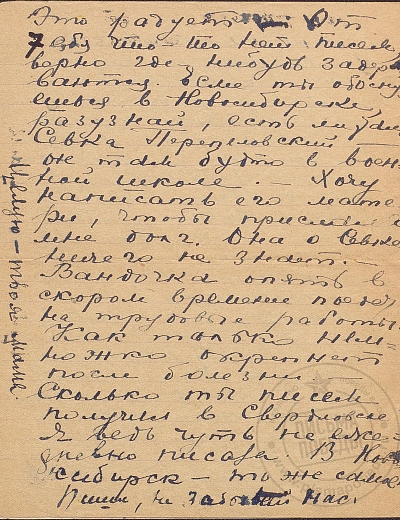 Это радует. От
тебя что-то нет писем,
верно где нибудь задер
ваются. Если ты обосну
ешься в Новосибирске,
разузнай, есть ли там
Севка Перепеловский —
он там будто в воен
ной школе. — Хочу
написать его мате
ри, чтобы прислали
мне долг. Она о Севке
ничего не знает.
Вандочка опять в
скором времени поедет
на трудовые работы.
Как только нем-
ножко окрепнет
после болезни.
Сколько ты писем
получил в Свердловске
Я ведь чуть не еже-
дневно писала. В Ново
сибирск — то же самое
Пиши, не забывай нас.
Целую — твоя мама.